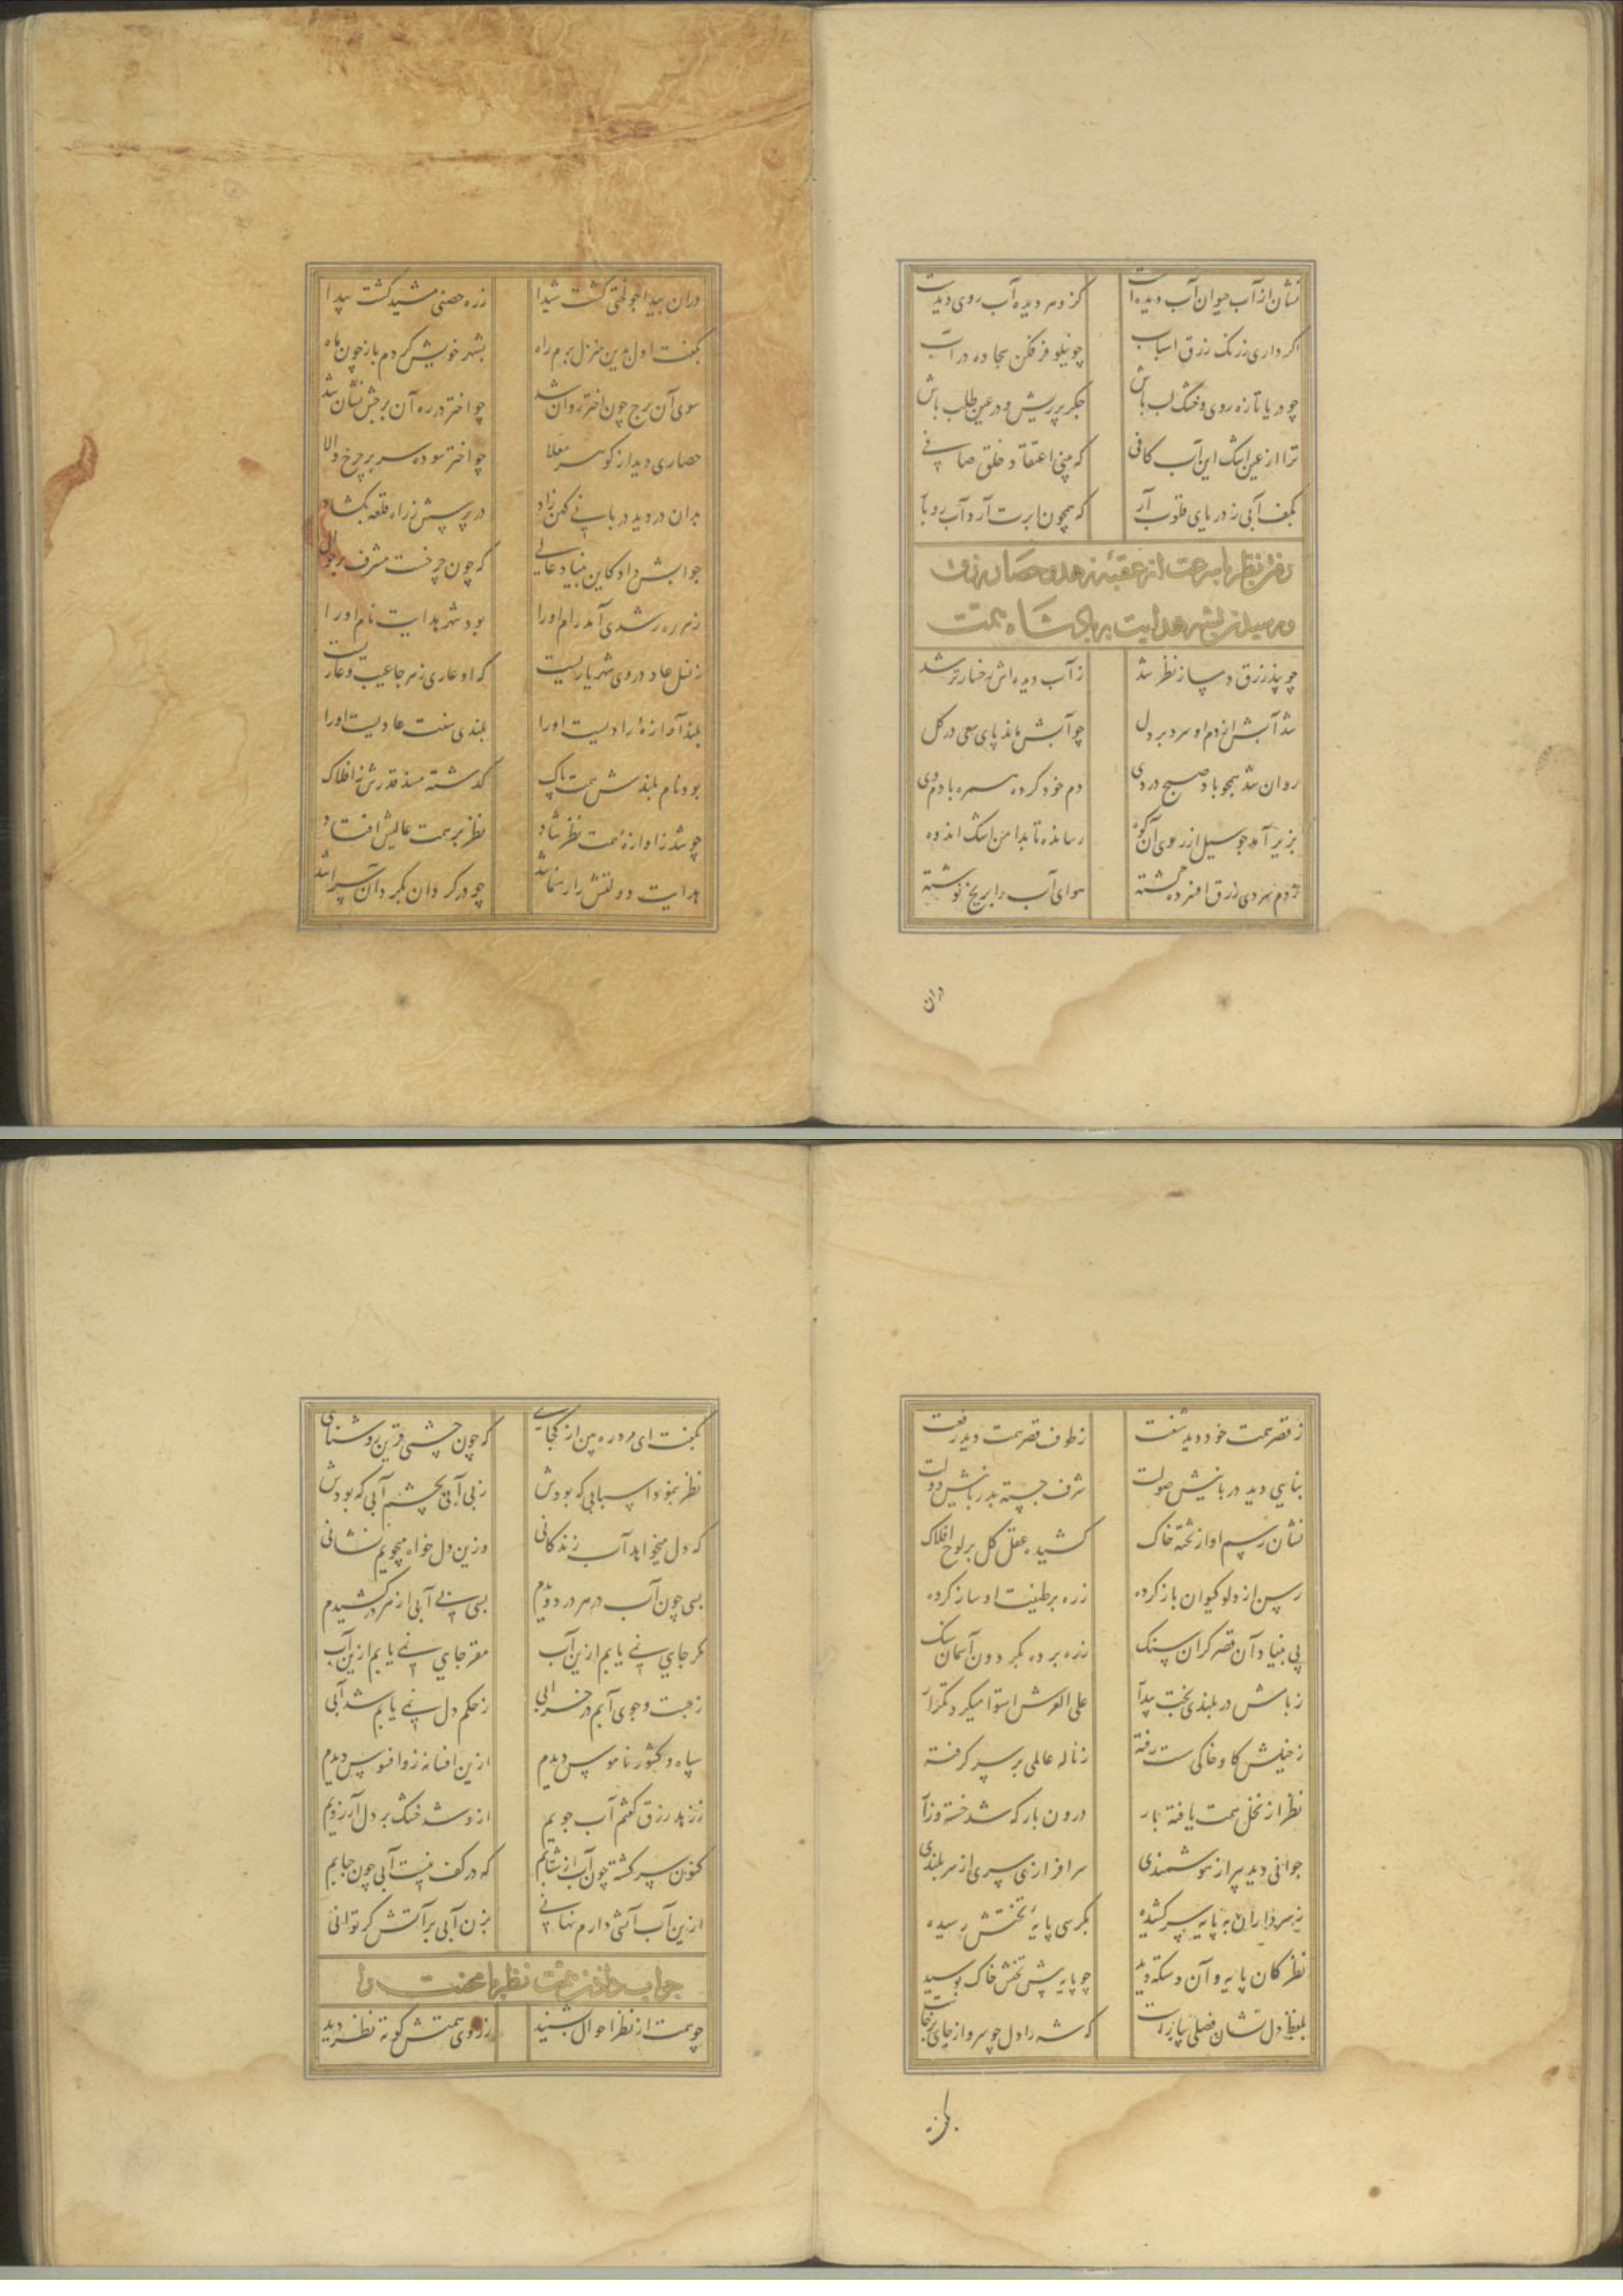 نشان از آب حیوان آب دیده است کز و هر دیده آب روی دیدست
اگر داری ز رنگ زرق اسباب چو نیلوفر فکن سجاده در آب
چو دریا تازه روی و خشک لب باش جگر پر ریش و در عین طلب باش
ترا از عین اشک این آب کافی که بینی اعتقاد خلق صافی
بکف آبی ز دریای قلوب آر که همچون ابرت آرد آب رو بار
رفتن نظر با سرعت از عقبه زهد و حصار زرق
و رسیدن بشهر هدایت بر پادشاه همت
چو پند زرق دمساز نظر شد ز آب دیده اش رخسار تر شد
شد آبش از دم او سرد بر دل چو آبش ماند پای سعی در گل
روان شد همچو باد صبح در دی دم خود کرده همره با دم وی
بزیر آمد چو سیل از روی آن کوه رسانده تا بدامن اشک اندوه
ز دم سردی زرق افسرده گشته هوای آب را بر یخ نوشته
دران
دران بیدا چو لختی گشت شیدا ز ره حصنی مشید گشت پیدا
بگفت اول بدین منزل برم راه بشهر خویش گردم باز چون ماه
سوی آن برج چون اختر روان شد چو اختر در ره آن برجش نشان شد
حصاری دید از گوهر معلا چو اختر سوده سر بر چرخ والا
بدان در دید دربانی کهن زاد در پرسش ز راه قلعه بگشاد
جوابش داد کاین بنیاد عالی که چون چرخست مشرف بر حوالی
ز هر ره رشدی آمد رام او را بود شهر هدایت نام او را
ز نسل عاد در وی شهریاریست که او عاری ز هر جا عیب و عاریست
بلند آوازه از رادیست او را بلندی سنت عادیست او را
بود نام بلندش همت پاک گذشته مسند قدرش ز افلاک
چو شد ز آوازهٔ همت نظر شاد نظر بر همت عالیش افتاد
هدایت دولتش را رهنما شد چو در گردان بگرد آن سرا شد
ز قصر همت خود دید شفقت ز طوف قصر همت دید رفعت
بنایی دید دربانیش صولت شرف جسته بدربانیش دولت
نشان رسم او از تخته خاک کشیده عقل کل بر لوح افلاک
رسن از دلو کیوان باز کرده زره بر طینت او ساز کرده
پی بنیاد آن قصر گران سنگ زره برده بگردون آسمان سنگ
ز بامش در بلندی بخت پیدا علی العرش استوا میکرد تکرار
ز خیلش گاو خاکی سست رفته ز ناله عالمی بر سر گرفته
نظر از نخل همت یافته بار درون بارگه شد خسته و زار
جوانی دید پیر از هوشمندی سر افرازی سری از سر بلندی
ز سرداران به پایه سر کشیده بکرسی پایهٔ تختش رسیده
نظر کان پایه و آن دستگه دید چو پایه پیش تختش خاک بوسید
بلفظ دل نشان فصلی بیاراست که شه را دل چو سرو از جای برخاست
بگفت
بگفت ای مرد ره بین از کجایی که چون چشمی قرین روشنایی
نظر بنمود اسبابی که بودش ز بی آبی بچشم آبی که بودش
که دل میخواهد آب زندگانی وزین دل خواه میجویم نشانی
بسی چون آب در هر در دویدم بسی بی آبی از هر در کشیدم
مگر جایی نمی یابم ازین آب مقر جایی نمی یابم ازین آب
ز جست و جوی آبم در خرابی ز حکم دل نمی یابم شد آبی
سپاه و کشور ناموس دیدم ازین افسانه زو افسوس دیدم
ز زهد و زرق گفتم آب جویم از و شد خشک بر دل آرزویم
کنون سر گشته چون آب از شتابم که در کف نیست آبی چون حبابم
ازین آب آتشی دارم نهانی بزن آبی بر آتش گر توانی
جواب دادن همت نظر با محنت را
چو همت از نظر احوال بشنید ز روی همتش گونه نظر دید